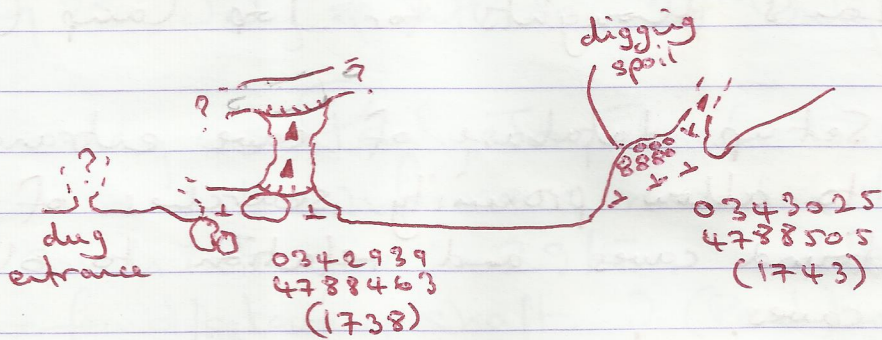 digging
spoil
?
?
?
dug
entrance
0342939
4788463
(1738)
0343025
4788505
(1743)